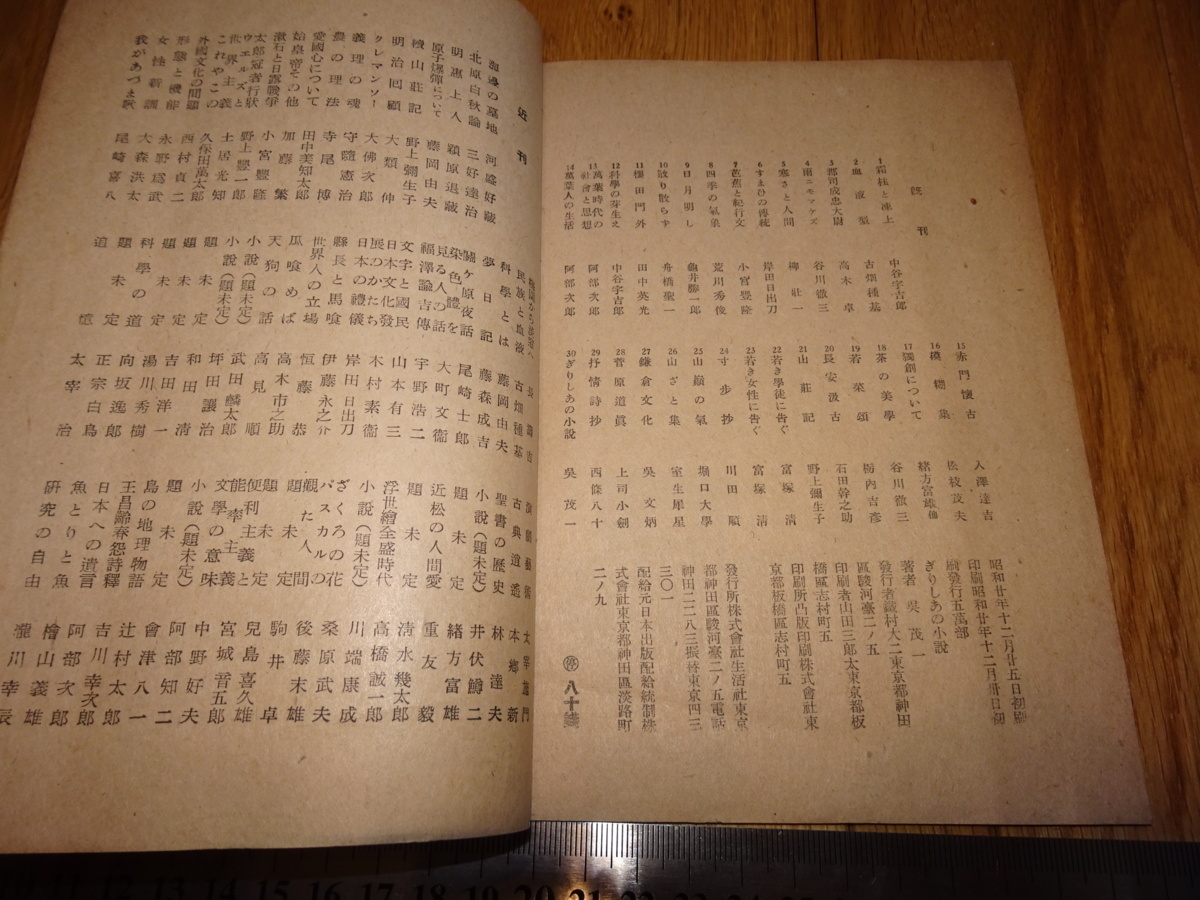 昭和廿年十二月廿五日初刷
印刷昭和廿年十二月卅日初
刷發行五萬部
ぎりしあの小説
著者 吳茂一
發行者鐵村大二東京都神田
區駿河臺二ノ五
印刷者山田三郎太東京都板
橋區志村町五
印刷所凸版印刷株式會社東
京都板橋區志村町五
發行所株式會社生活社東京
都神田區駿河臺二ノ五電話
神田二二八三振替東京四三
三〇一
配給元日本出版配給統制株
式會社東京都神田區淡路町
二ノ九
八十錢
既刊
1 霜柱と凍上 中谷宇吉郎
2 血液型 古畑種基
3 郡司成忠大尉 高木卓
4 雨ニモマケズ 谷川徹三
5 寒さと人間 柳壯一
6 すまひの傳統 岸田日出刀
7 芭蕉と紀行文 小宮豐隆
8 四季の氣象 荒川秀俊
9 日月明し 龜井勝一郎
10 散り散らず 舟橋聖一
11 櫻田門外 田中英光
12 科學の芽生え 中谷宇吉郎
13 萬葉時代の社會と思想 阿部次郎
14 萬葉人の生活 阿部次郎
15 赤門懷古 入澤達吉
16 模糊集 佐枝茂夫
17 獨創について 緒方富雄
18 茶の美學 谷川徹三
19 若菜頌 栃內吉彥
20 長安汲古 石田幹之助
21 山莊記 野上彌生子
22 若き學徒に告ぐ 富塚清
23 若き女性に告ぐ 富塚清
24 寸步抄 川田順
25 山嶺の氣 堀口大學
26 山ざと集 室生犀星
27 鎌倉文化 吳文炳
28 菅原道眞 上司小劍
29 抒情詩抄 西條八十
30 ぎりしあの小説 吳茂一
近刊
海邊の墓地 河盛好藏
北原白秋論 三好達治
明惠上人 穎原退藏
原子爆彈について 藤岡由夫
續山莊記 野上彌生子
明治回顧 大類伸
クレマンソー 大佛次郎
義理の魂 守隨憲治
農の理法 寺尾博
愛國心について 田中美知太郎
始皇帝その他 加藤繁
漱石と日露戰爭 小宮豐隆
太郎冠者行狀 野上豐一郎
ウエルズと世界主義 土居光知
これやこの 久保田萬太郎
外國文化の問題 西村貞二
形態と機能 永野爲武
女性新調 大森洪太
我があづま歌 尾崎喜八
民族と血液 古畑種基
科學とは 藤岡由夫
夢日記 藤森成吉
關ヶ原夜話 尾崎士郎
染色體を見る人の話 大町文衞
福澤諭吉傳 宇野浩二
文字と國民 山本有三
日本文化發展のかたち 木村素衞
日本の禮儀 岸田日出刀
縣長と馬喰 伊藤永之介
世界人の立場 恒藤恭
瓜喰めば 高木市之助
天狗の話 高見順
小說(題未定) 武田麟太郎
小說(題未定) 坪田讓治
題未定 和田清
題未定 吉田洋一
題未定 湯川秀樹
科學の道 向坂逸郎
題未定 正宗白鳥
追憶 太宰治
古典道遙 本鄉新
聖書の歷史 林達夫
小說(題未定) 井伏鱒二
題未定 緒方富雄
近松の人間愛 重友毅
題未定 淸水幾太郎
浮世繪全盛時代 高橋誠一郎
小說(題未定) 川端康成
ざくろの花 桑原武夫
パスカルの觀た人間 後藤末雄
題未定 駒井卓
題未定 兒島喜久雄
便利主義と能率主義 宮城音五郎
文學の意味 中野好夫
小說(題未定) 阿部知二
題未定 會津八一
島の地理物語 辻村太郎
王昌齡春怨詩釋 吉川幸次郎
日本への遺言 阿部次郎
魚とりと魚 檜山義雄
研究の自由 瀧川幸辰